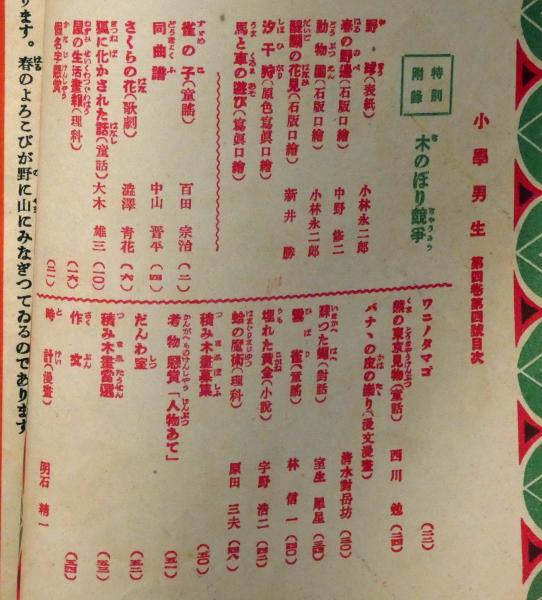 小學男生 第四卷第四號目次
特別附錄
木のぼり競爭
野球(表紙) 小林永二郎
春の野邊(石版口繪) 小林永二郎
動物園(石版口繪) 中野修二
醍醐の花見(石版口繪) 新井勝
汐干狩(原色寫眞口繪)
馬と車の遊び(寫眞口繪)
雀の子(童謠) 百田宗治 (二)
同曲譜 中山晋平 (四)
さくらの花(歌劇) 澁澤青花 (六)
狐に化かされた話(童話) 大木雄三 (一〇)
の生活畫報(理科) (一八)
假名字懸賞 (二一)
ワニノタマゴ (二二)
熊の東京見物(童話) 西川勉 (二四)
バナヽの皮の祟り(漫文漫畫) 清水對岳坊 (三〇)
つた(對話) 室生犀星
雲雀(童謠) 林信一 (四〇)
埋れた黄金(小說) 宇野浩二 (四二)
蛤の魔術(理科) 原田三夫 (四八)
積み木畫募集 (五〇)
考物懸賞「人物あて」 (五一)
だんわ室 (五二)
積み木畫當選 (五三)
作文 (五四)
時計(漫畫) 明石精一
ります。春のよろこびが野に山にみなぎつてゐるのであります